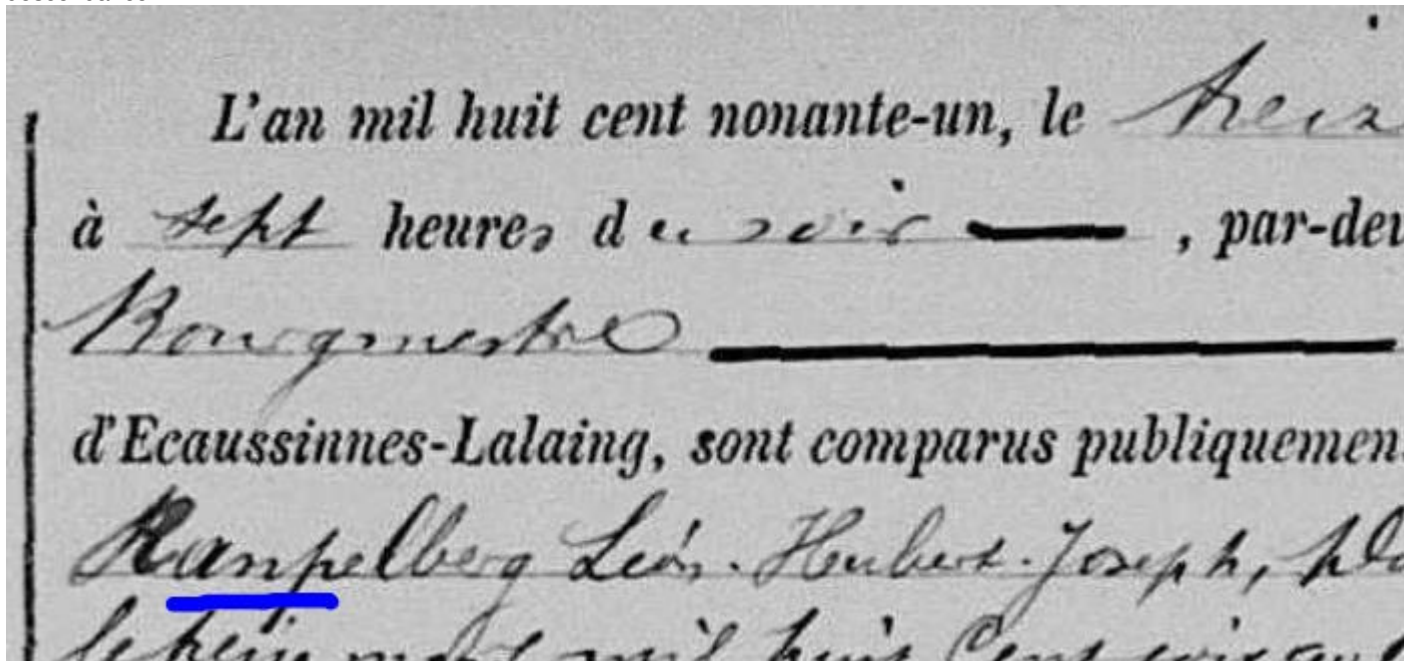 L'an mil huit cent nonante-un, le treiz
à sept heures du soir, par-dev
Bourgmestre
d'Ecaussinnes-Lalaing, sont comparus publiquemen
Ranpelberg Léon. Hubert. Joseph,
mil huit Cent